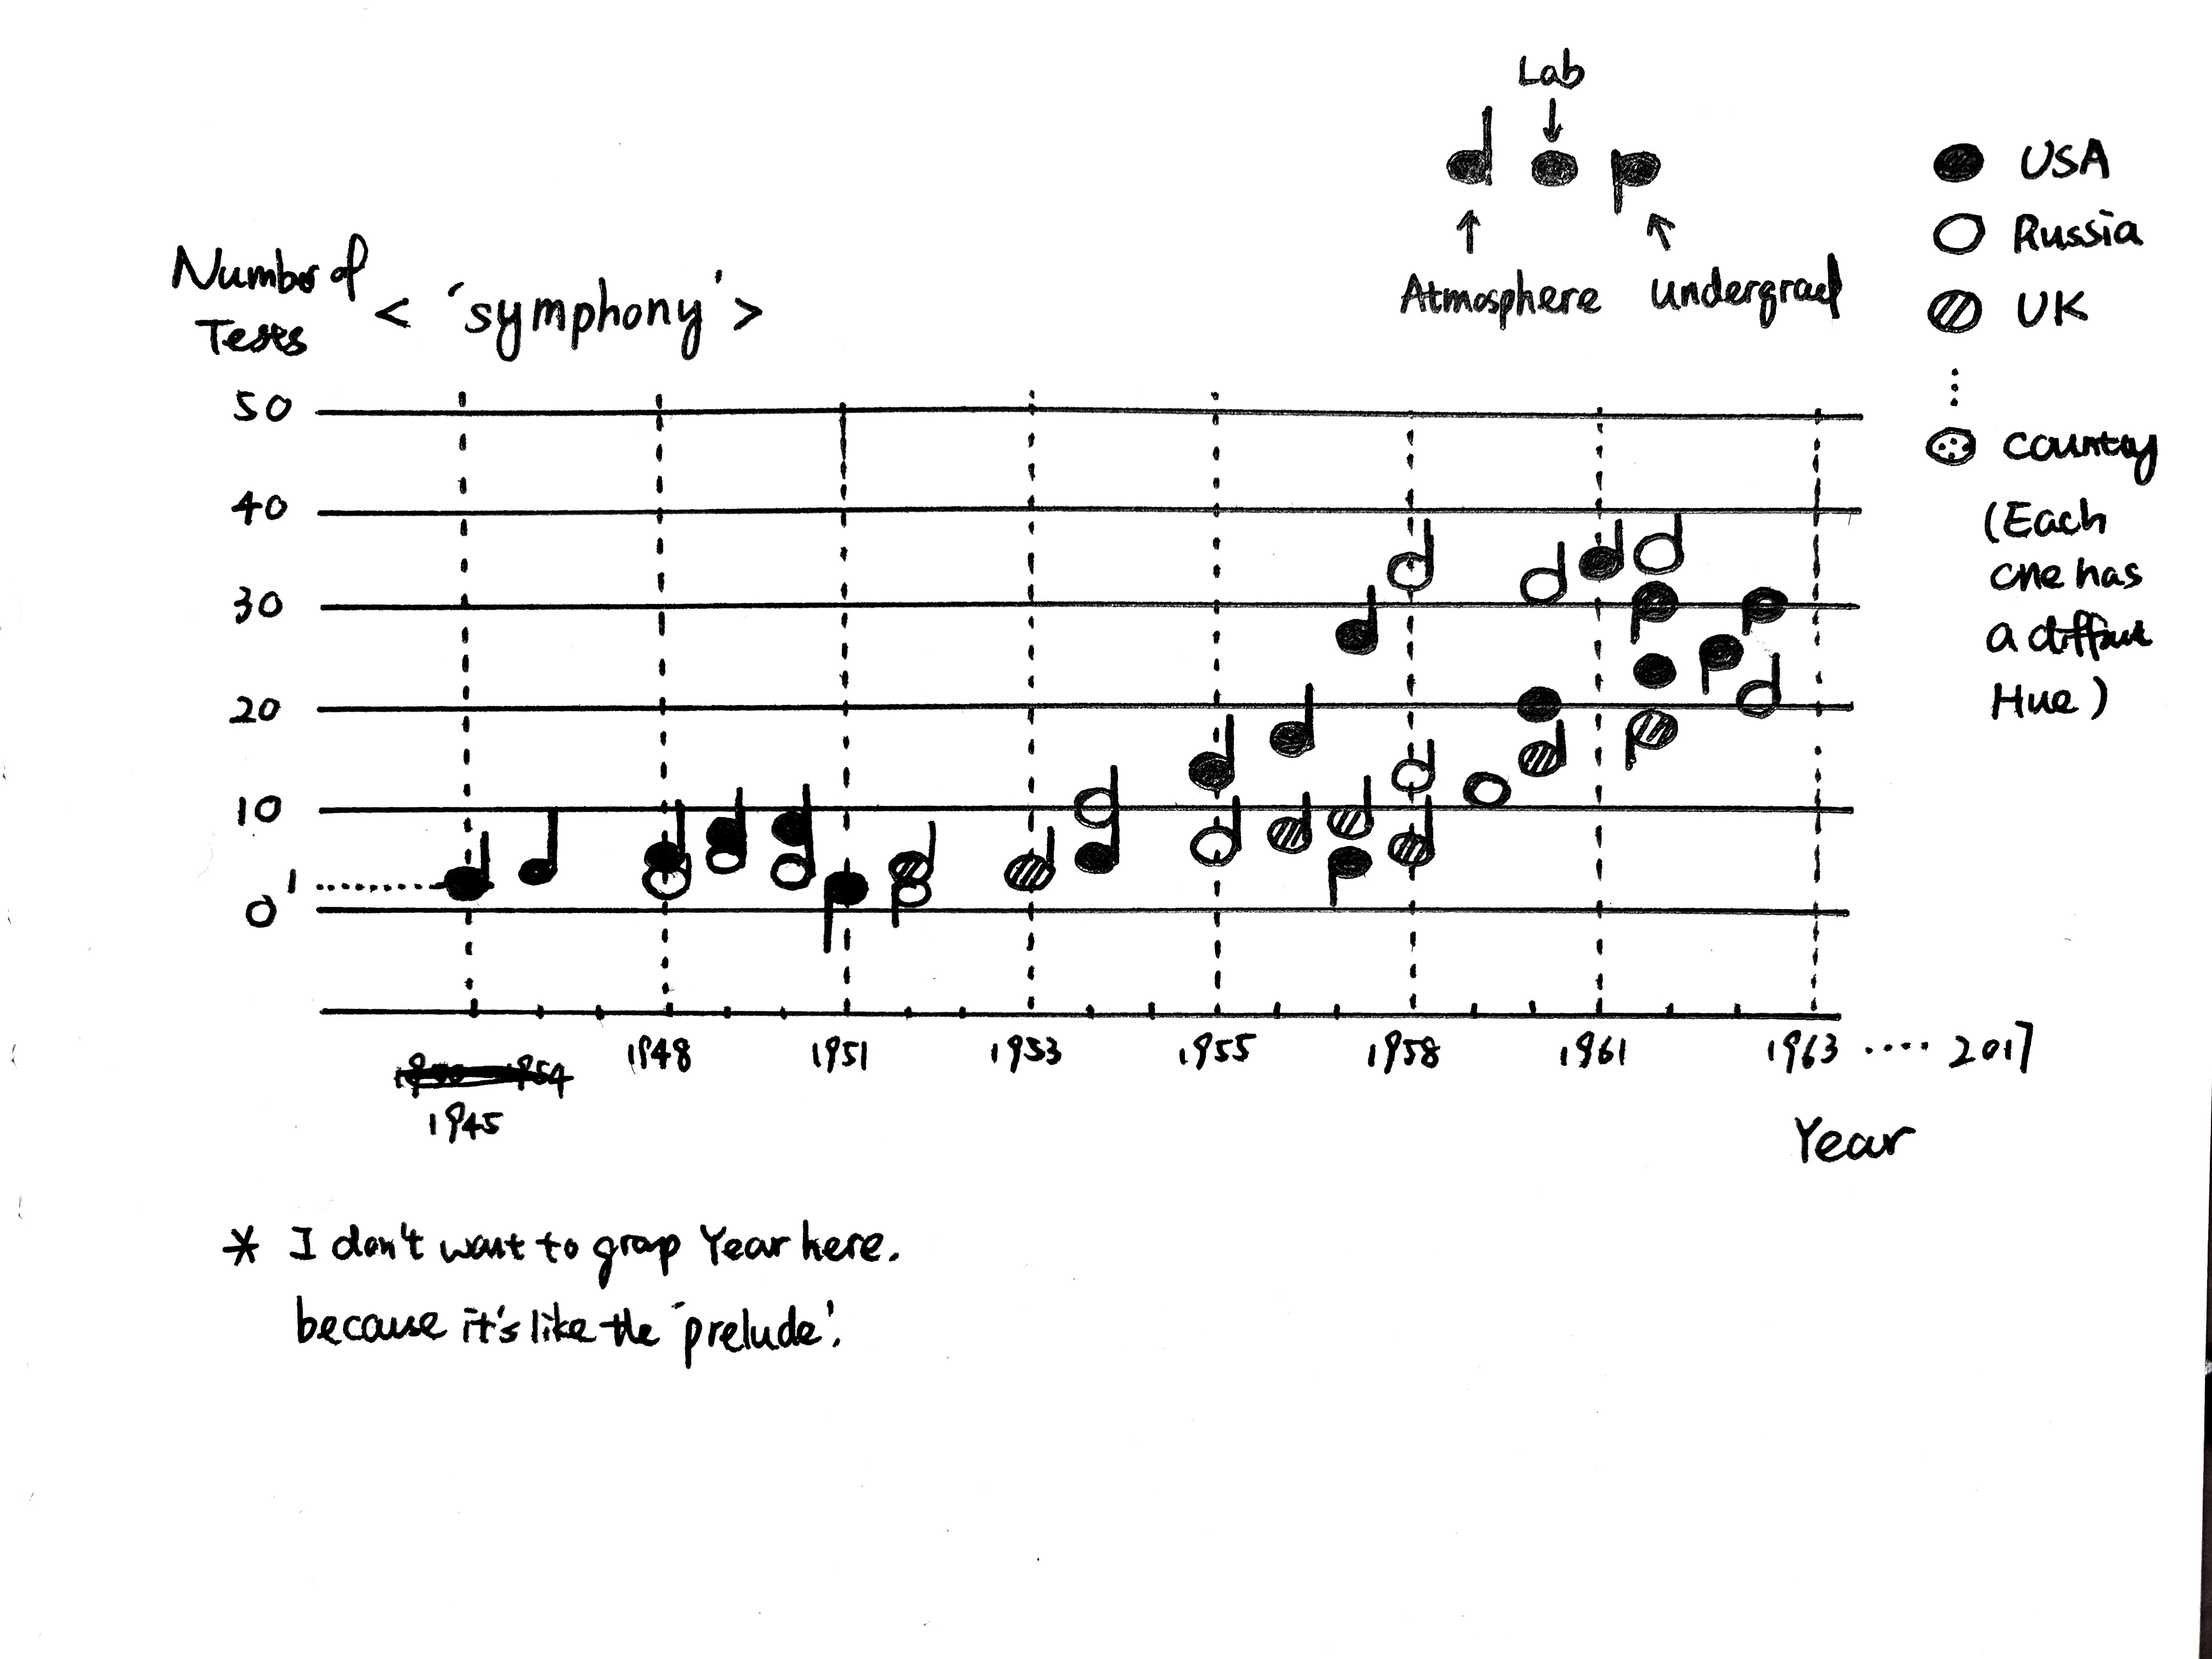 Lab
Atmosphere
USA
Russia
UK
country
(Each
one has
a
Hue)
Number of
Tests
< 'symphony' >
50
40
30
20
10
1
0
1948 1951 1953 1955 1958 1961 1963 .... 2017
1945
Year
* I don't want to group Year here.
because it's like the 'prelude'.